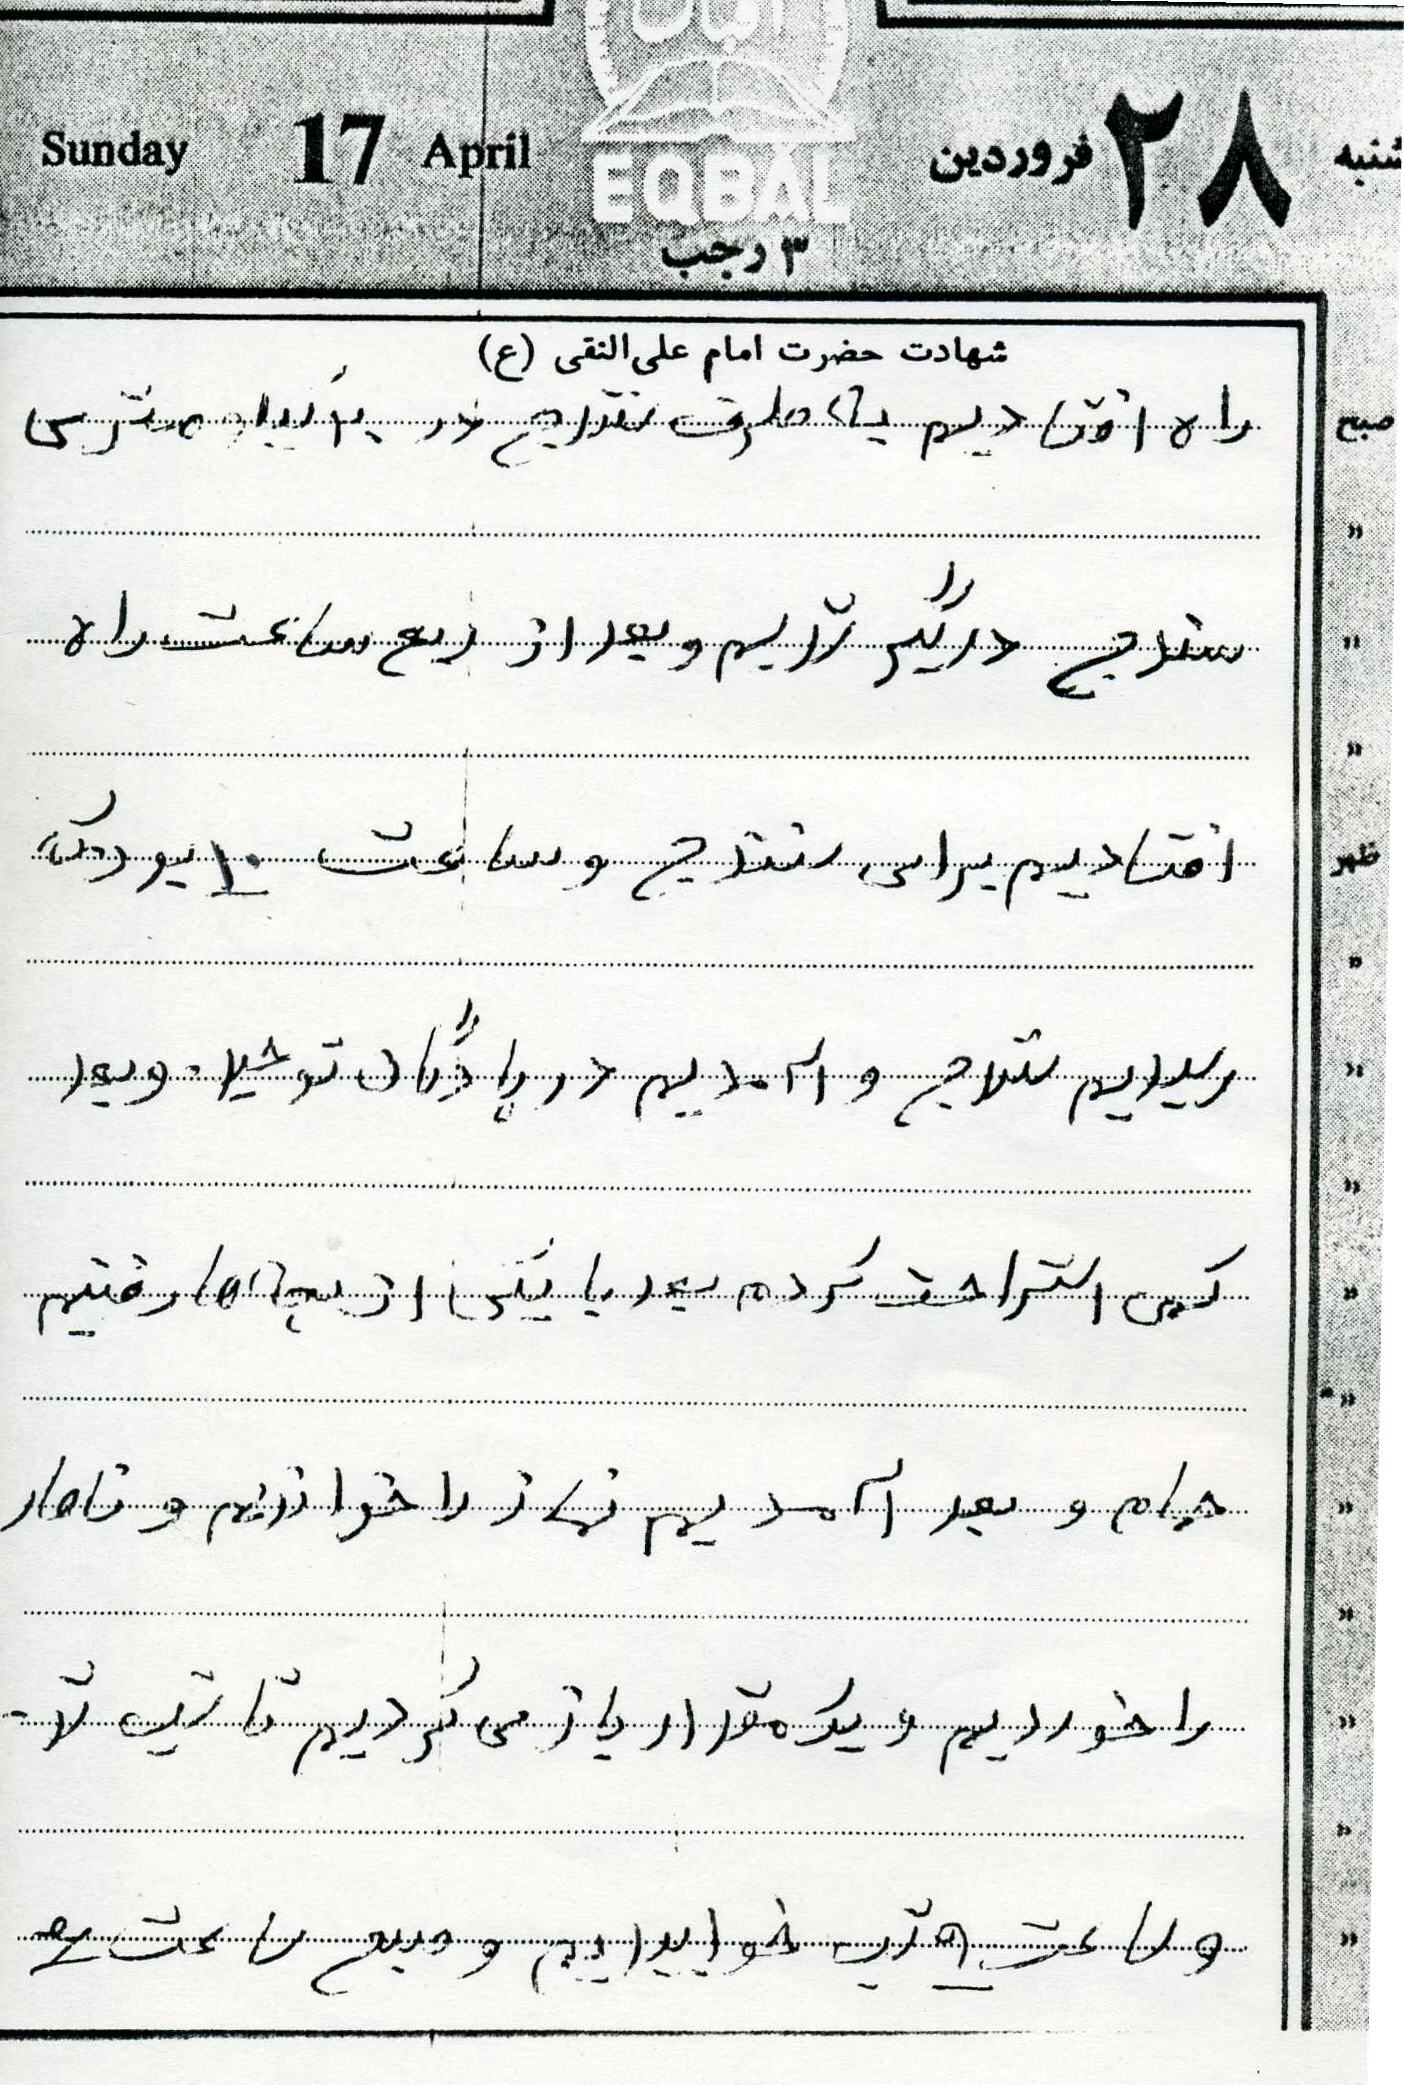 Sunday 17 April EQBAL ۲۸ فروردین شنبه
۳ رجب
شهادت حضرت امام علی‌النقی (ع)
صبح راه افتادیم به طرف سنندج در
سنندج درگیر شدیم و بعد از ربع ساعت راه
ظهر افتادیم برای سنندج و ساعت ۱۰ بود که
رسیدیم سنندج و آمدیم در پادگان توحید و بعد
کمی استراحت کرده بعد با یکی از بچه‌ها رفتیم
حمام و بعد آمدیم نماز را خواندیم و ناهار
را خوردیم و یک مقدار باز می گردیم تا شب شد
و ساعت ۹ شب خوابیدیم و صبح ساعت